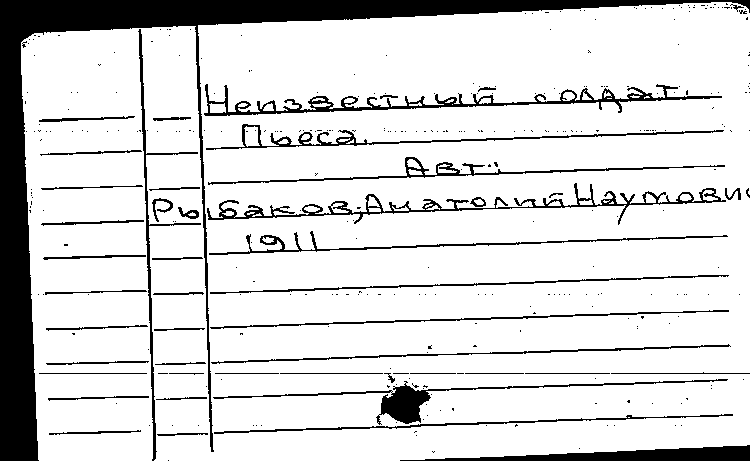 Неизвестный солдат.
Пьеса.
Авт.:
Рыбаков, Анатолий Наумович
1911